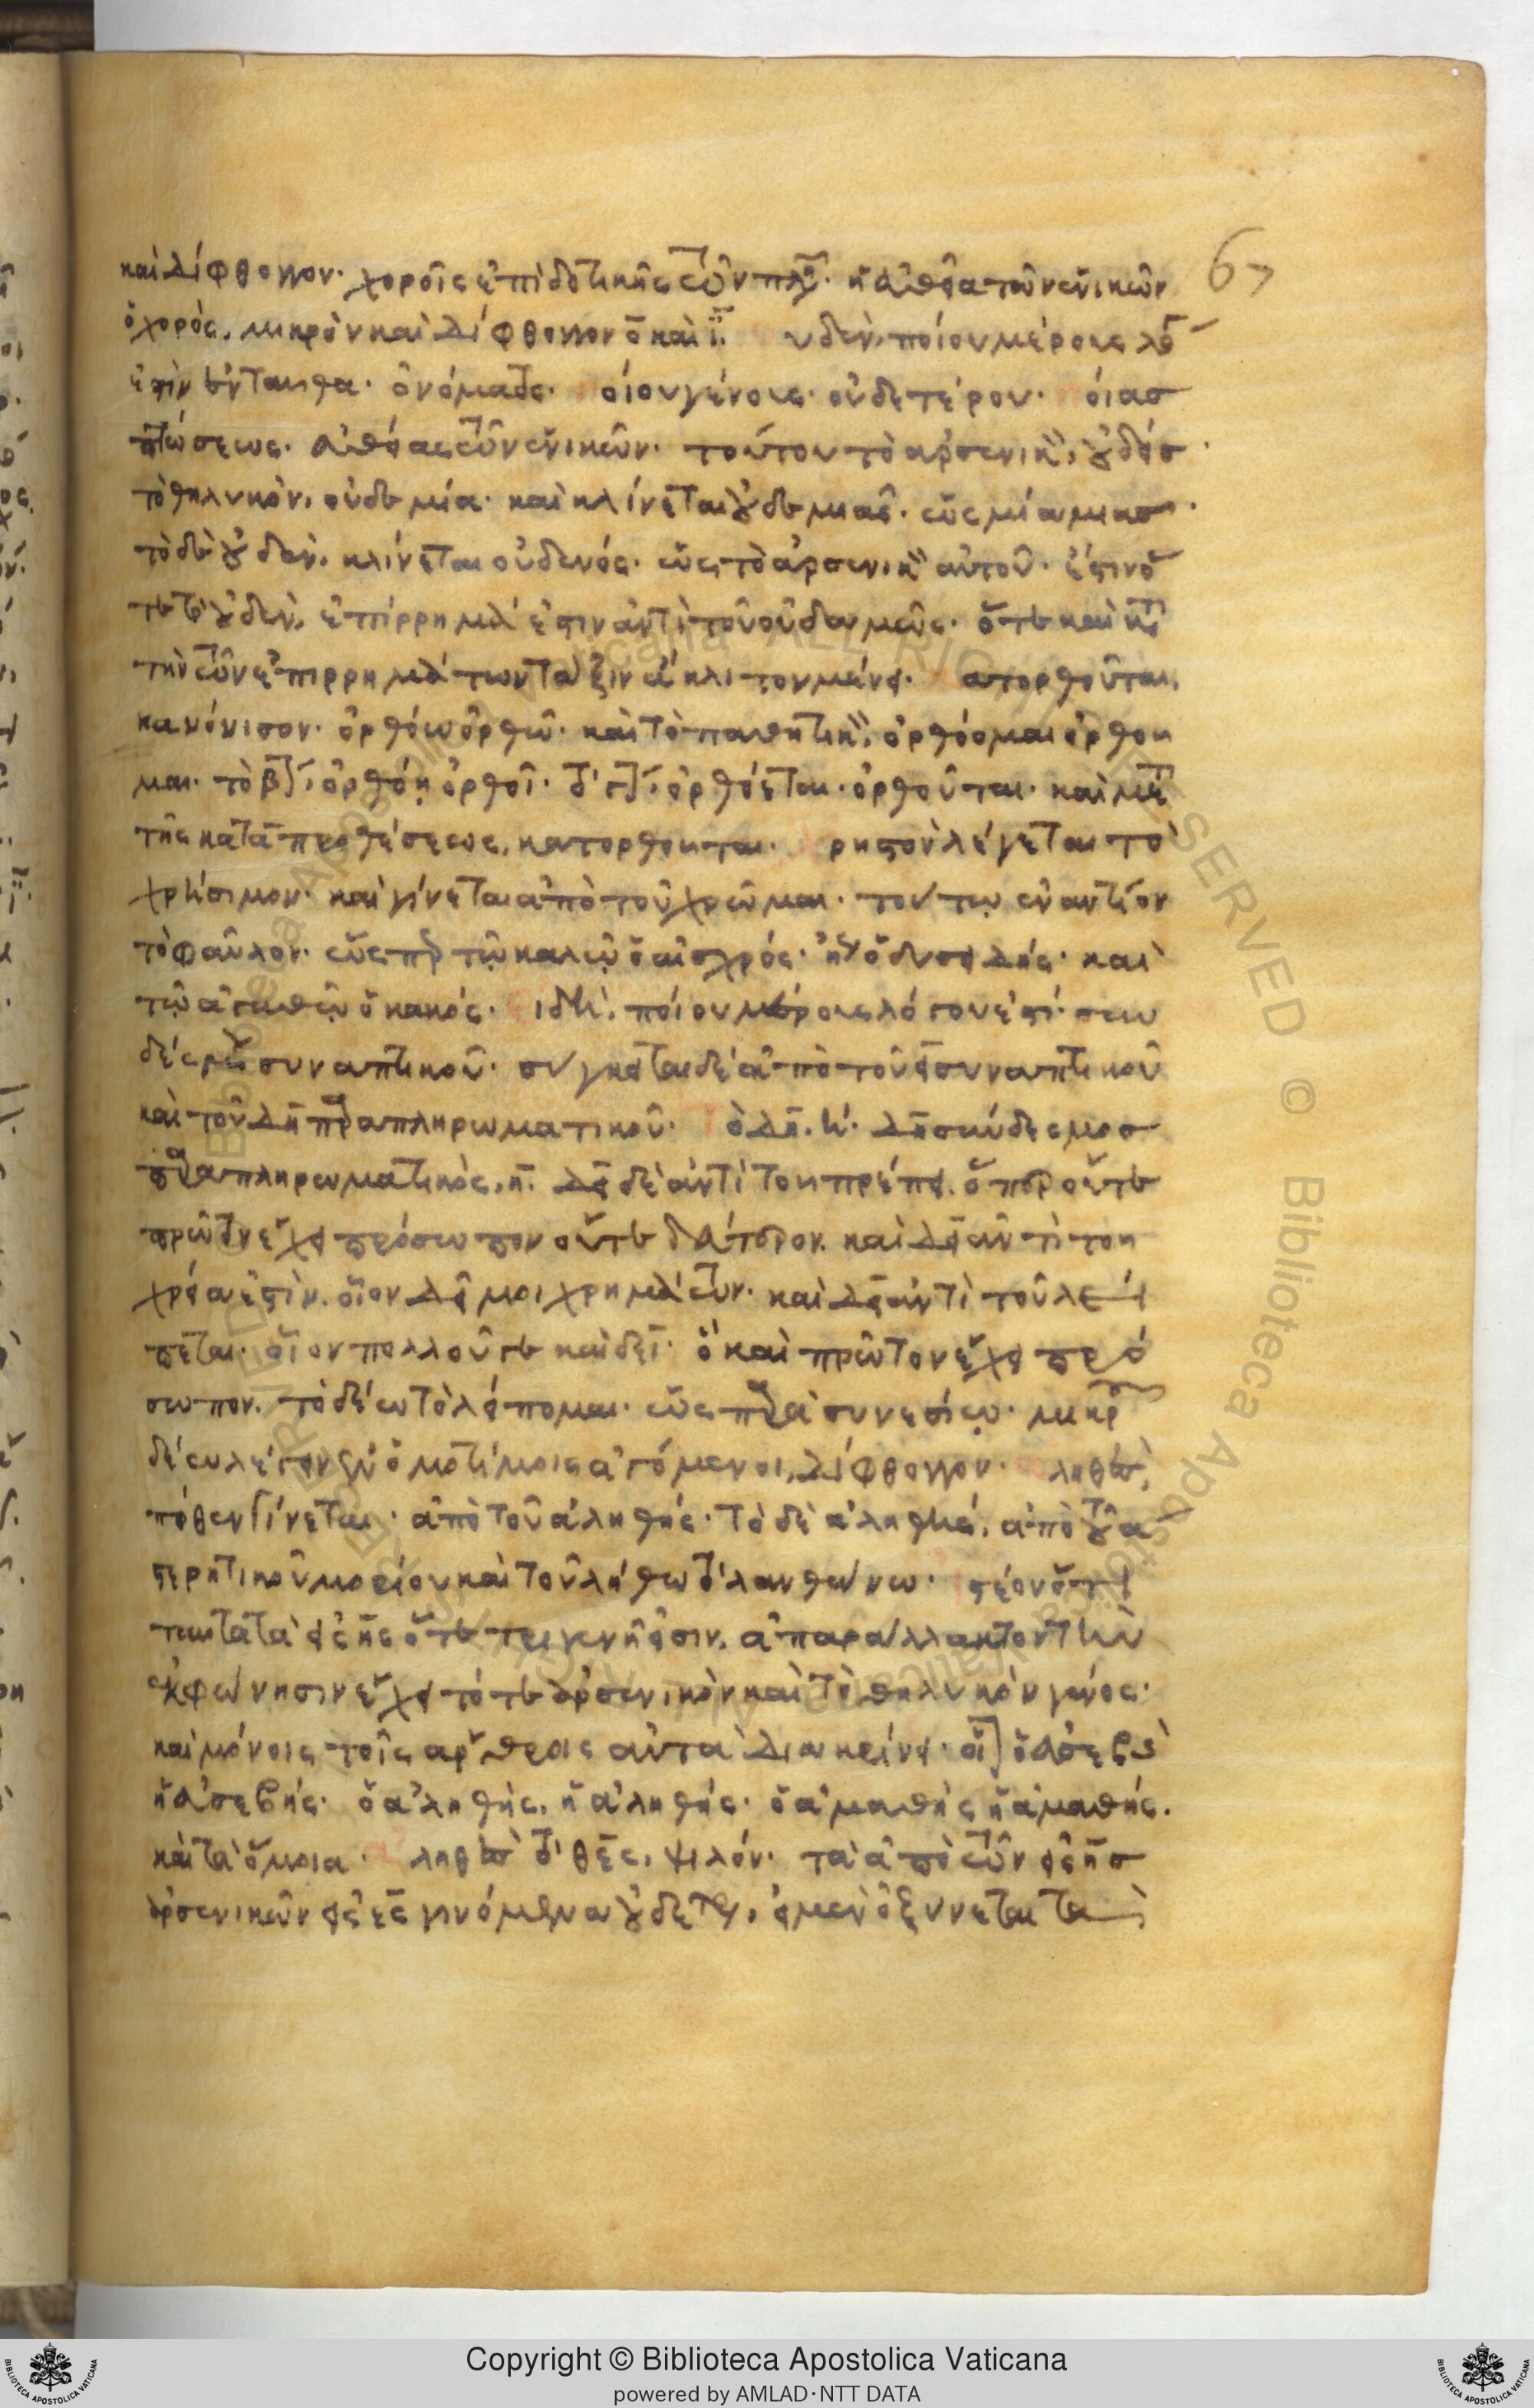 67
καὶ δίφθογγον· χοροῖς ἐπὶ δοτικῆς τῶν πλη· ἡ εὐθεῖα τῶν ἑνικῶν
ὁ χορός, μικρὸν καὶ δίφθογγον ὂ καὶ ϊ· υδέν, ποίου μέρους λό
ἐστὶν ἐνταυθα· ὀνόματος· οίου γένους· οὐδετέρου· οίασ
πτώσεως· εὐθείας τῶν ἑνικῶν· τούτου τὸ ἀρσενικ, οὐδείσ
τὸ θηλυκὸν, οὐδεμία· καὶ κλίνεται οὐδεμιᾶς· ὡς μία μιασ
τὸ δὲ οὐδὲν, κλίνεται οὐδενός· ὡς τὸ ἀρσενικ αὐτοῦ· ἔστιν ὅ
τε τὸ οὐδὲν, ἐπίρρημά ἐστιν ἀντὶ τοῦ οὐδαμῶς· ὅτε καὶ κτ
τὴν τῶν ἐπιρρημάτων τάξιν ἄκλιτον μένει· ατορθοῦται,
κανόνισον· ὀρθόω ὀρθῶ· καὶ τὸ παθητικ, ὀρθόομαι ὀρθου
μαι· τὸ β ὀρθόῃ ὀρθοῖ· τὸ γ ὀρθόεται· ὀρθοῦται· καὶ με
τῆς κατὰ προθέσεως, κατορθουται· ρηστὸν λέγεται τὸ
χρήσιμον· καὶ γίνεται ἀπὸ τοῦ χρῶμαι· τούτῳ ἐναντίον
τὸ φαῦλον· ὡς πρ τῷ καλῷ ὁ αἰσχρός· ἢ ὁ δυσειδής· καὶ
τῷ ἀγαθῷ ὁ κακός· ιδή, ποίου μέρους λόγου ἐστί· συν
δέσμου συναπτικοῦ· σύγκειται δὲ ἀπὸ τοῦ εἰ συναπτικοῦ
καὶ τοῦ δὴ παραπληρωματικοῦ· ὸ δὴ, η· δὴ σύνδεσμοσ
παραπληρωματικὸς, η· δεῖ δὲ ἀντὶ του πρέπει. ὅπερ οὔτε
πρῶτον ἔχει πρόσωπον οὔτε δεύτερον. καὶ δεῖ ἀντὶ του
χρεία ἐστὶν. οἷον δεῖ μοι χρημάτων· καὶ δεῖ ἀντὶ τοῦ λεί
πεται· οἷον πολλοῦ γε καὶ δεῖ· ὃ καὶ πρῶτον ἔχει πρό
σωπον. τὸ δέω τὸ λείπομαι· ὡς παρὰ συνεσίῳ· μικρ
δέω λέγειν ὁμοτίμοις ἀγόμενοι, δίφθογγον· ληθὲς,
πόθεν γίνεται· ἀπὸ τοῦ ἀληθής· τὸ δὲ ἀληθής, ἀπὸ τοῦ α
στερητικοῦ μορίου καὶ τοῦ λήθω τὸ λανθάνω· στέον ὅτι
ταῦτα τὰ εἰς ης ὅτε τριγενῆ εἰσιν, ἀπαράλλακτον τὴν
ἐκφώνησιν ἔχει τό τε ἀρσενικὸν καὶ τὸ θηλυκὸν γένος·
καὶ μόνοις τοῖς ἄρθροις αὐτὰ διακρίνει· οἷ ὁ εὐσεβὴς
ἡ εὐσεβής· ὁ ἀληθὴς, ἡ ἀληθής· ὁ ἀμαθὴς ἡ ἀμαθής.
καὶ τὰ ὅμοια· ληθὲς τὸ θες, ψιλόν· τὰ ἀπὸ τῶν εἰς ησ
ἀρσενικῶν εἰς ες γινόμενα οὐδετε, εἰ μὲν ὀξύνεται τὰ